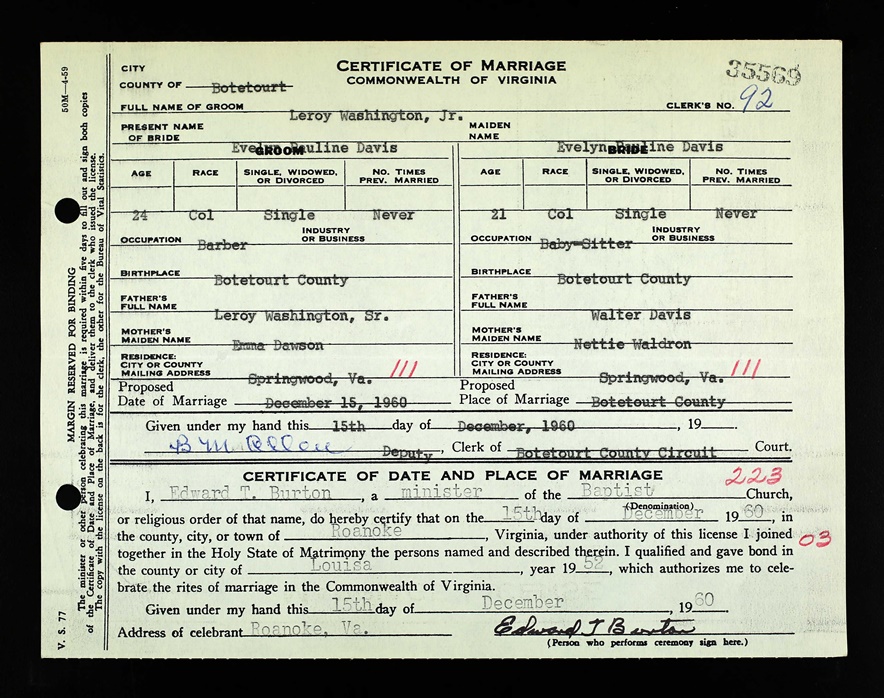 CITY
CERTIFICATE OF MARRIAGE
35569
COUNTY OF Botetourt
COMMONWEALTH OF VIRGINIA
CLERK'S NO. 92
FULL NAME OF GROOM Leroy Washington, Jr.
PRESENT NAME OF BRIDE Evelyn Pauline Davis MAIDEN NAME Evelyn Pauline Davis
GROOM BRIDE
AGE RACE SINGLE, WIDOWED, OR DIVORCED NO. TIMES PREV. MARRIED AGE RACE SINGLE, WIDOWED, OR DIVORCED NO. TIMES PREV. MARRIED
24 Col Single Never 21 Col Single Never
OCCUPATION Barber INDUSTRY OR BUSINESS OCCUPATION Baby-Sitter INDUSTRY OR BUSINESS
BIRTHPLACE Botetourt County BIRTHPLACE Botetourt County
FATHER'S FULL NAME Leroy Washington, Sr. FATHER'S FULL NAME Walter Davis
MOTHER'S MAIDEN NAME Emma Dawson MOTHER'S MAIDEN NAME Nettie Waldron
RESIDENCE: CITY OR COUNTY MAILING ADDRESS Springwood, Va. 111 RESIDENCE: CITY OR COUNTY MAILING ADDRESS Springwood, Va. 111
Proposed Date of Marriage December 15, 1960 Proposed Place of Marriage Botetourt County
Given under my hand this 15th day of December, 1960, 19
Deputy, Clerk of Botetourt County Circuit Court.
CERTIFICATE OF DATE AND PLACE OF MARRIAGE 223
I, Edward T. Burton, a minister of the Baptist Church,
(Denomination)
or religious order of that name, do hereby certify that on the 15th day of December 1960, in
the county, city, or town of Roanoke, Virginia, under authority of this license I joined
03
together in the Holy State of Matrimony the persons named and described therein. I qualified and gave bond in
the county or city of Louisa, year 1952, which authorizes me to cele-
brate the rites of marriage in the Commonwealth of Virginia.
Given under my hand this 15th day of December, 1960.
Address of celebrant Roanoke, Va. Edward T Burton
(Person who performs ceremony sign here.)
V. S. 77
MARGIN RESERVED FOR BINDING
50M—4-59
The minister or other person celebrating this marriage is required within five days to fill out and sign both copies
of the Certificate of Date and Place of Marriage, and deliver them to the clerk who issued the license.
The copy with the license on the back is for the clerk, the other for the Bureau of Vital Statistics.